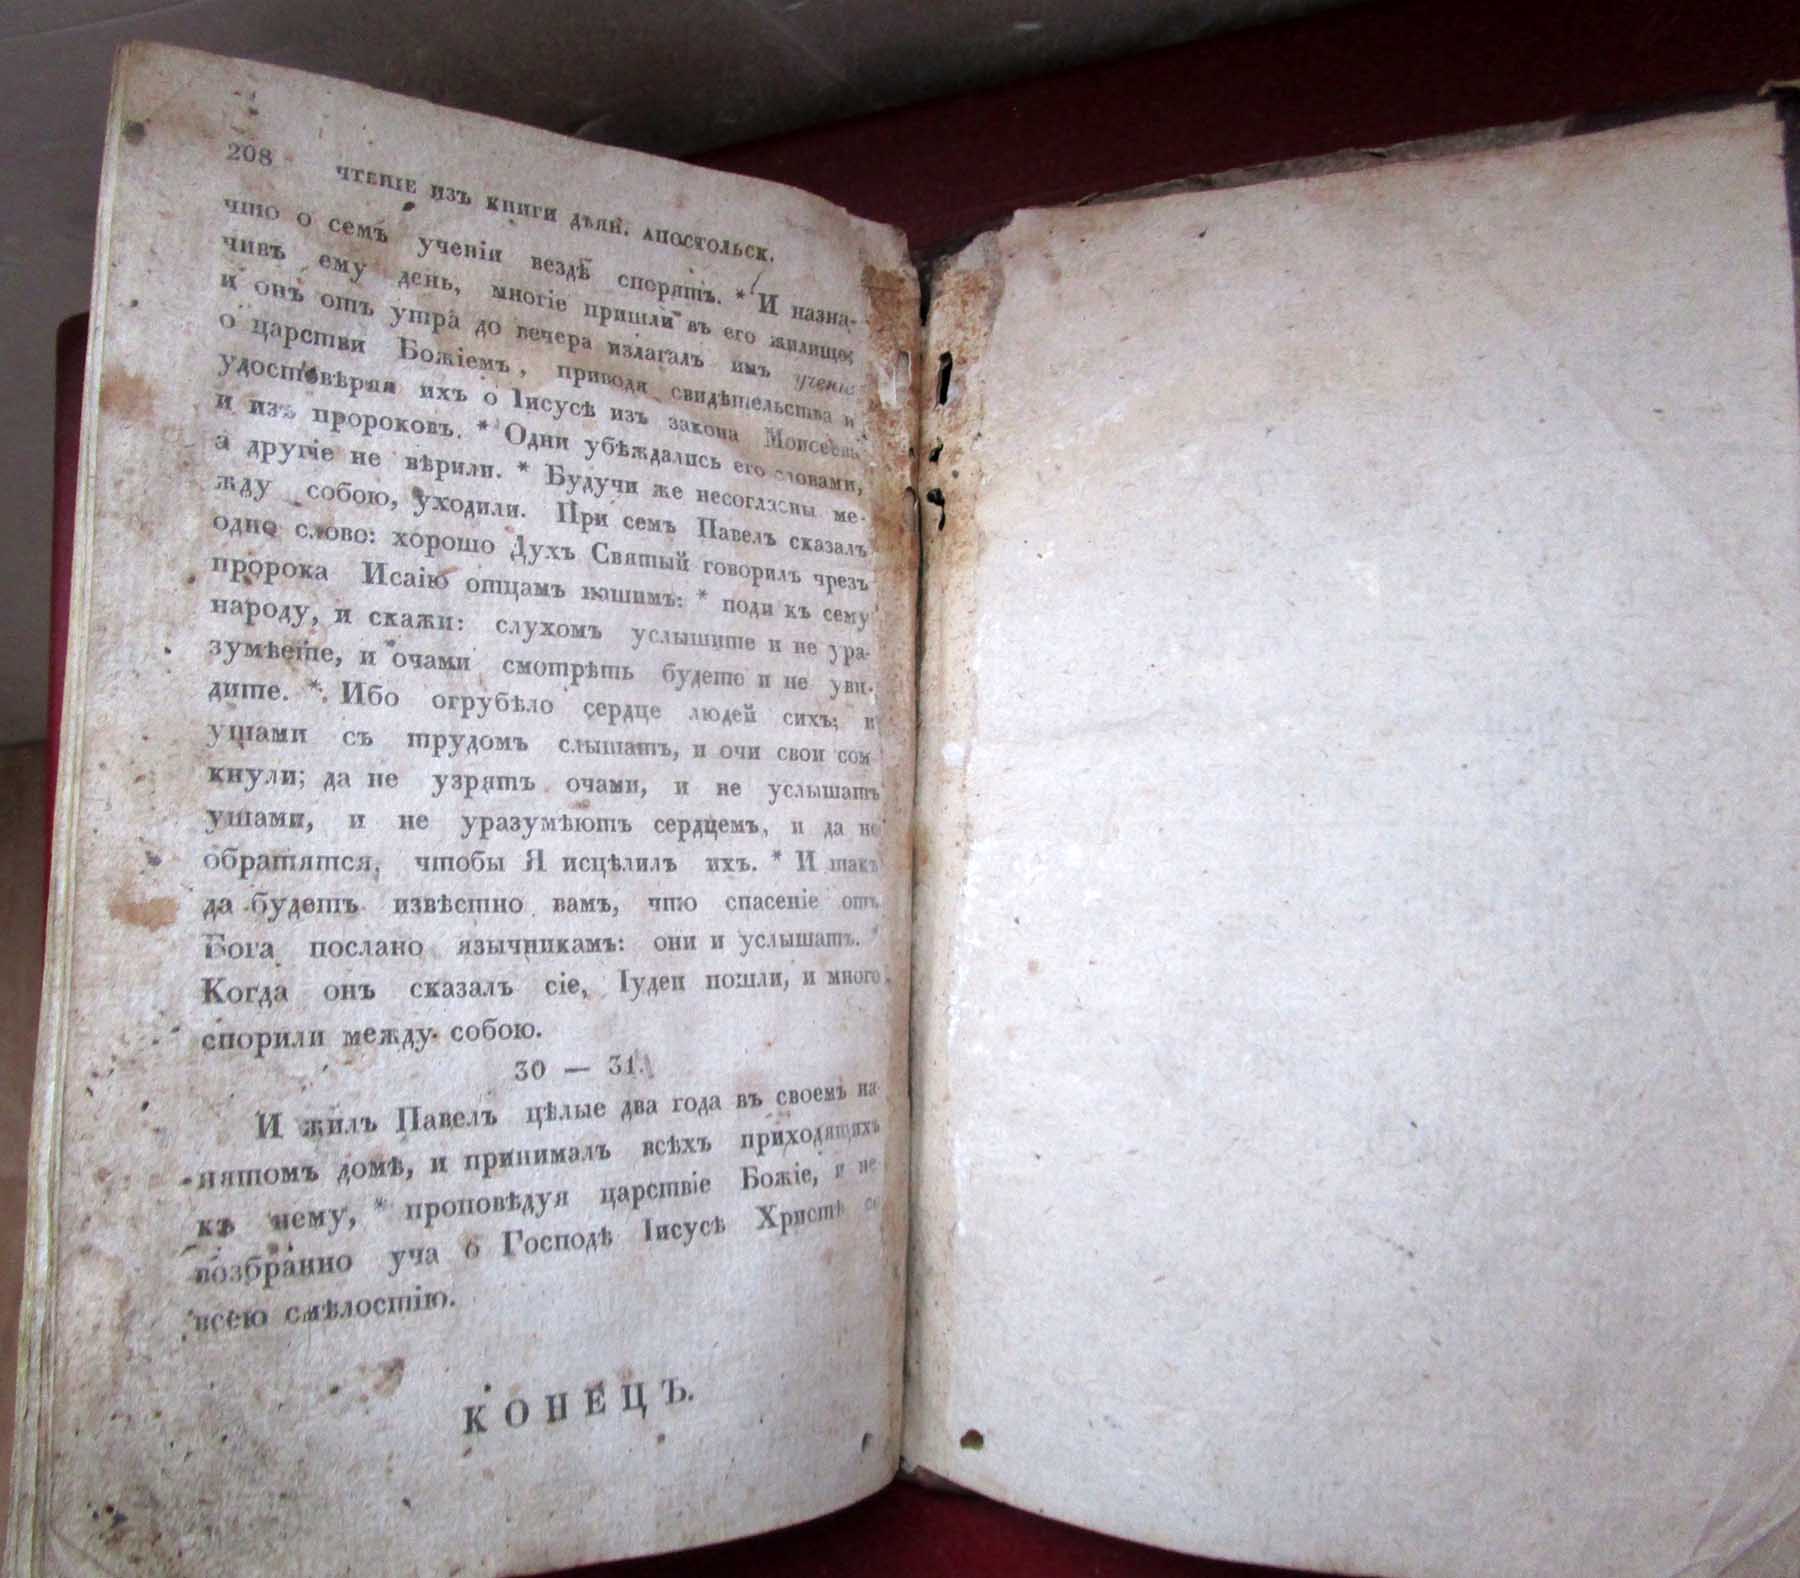 208 ЧТЕНІЕ ИЗЪ КНИГИ ДѢЯН. АПОСТОЛЬСК.
что о семъ ученіи вездѣ спорятъ. * И назна-
чивъ ему день, многіе пришли въ его жилище;
и онъ отъ утра до вечера излагалъ имъ ученіе
о царствіи Божіемъ, приводя свидѣтельства и
удостовѣряя ихъ о Іисусѣ изъ закона Моисеева
и изъ пророковъ. * Одни убѣждались его словами,
а другіе не вѣрили. * Будучи же несогласны ме-
жду собою, уходили. При семъ Павелъ сказалъ
одно слово: хорошо Духъ Святый говорилъ чрезъ
пророка Исаію отцамъ нашимъ: * поди къ сему
народу, и скажи: слухомъ услышите и не ура-
зумѣете, и очами смотрѣть будете и не уви-
дите. * Ибо огрубѣло сердце людей сихъ; и
ушами съ трудомъ слышатъ, и очи свои сом
кнули; да не узрятъ очами, и не услышатъ
ушами, и не уразумѣютъ сердцемъ, и да не
обратятся, чтобы Я исцѣлилъ ихъ. * И такъ
да будетъ извѣстно вамъ, что спасеніе отъ
Бога послано язычникамъ: они и услышатъ. *
Когда онъ сказалъ сіе, Іудеи пошли, и много
спорили между собою.
30 — 31.
И жилъ Павелъ цѣлые два года въ своемъ на-
нятомъ домѣ, и принималъ всѣхъ приходящихъ
къ нему, * проповѣдуя царствіе Божіе, и не
возбранно уча о Господѣ Іисусѣ Христѣ со
всею смѣлостію.
КОНЕЦЪ.